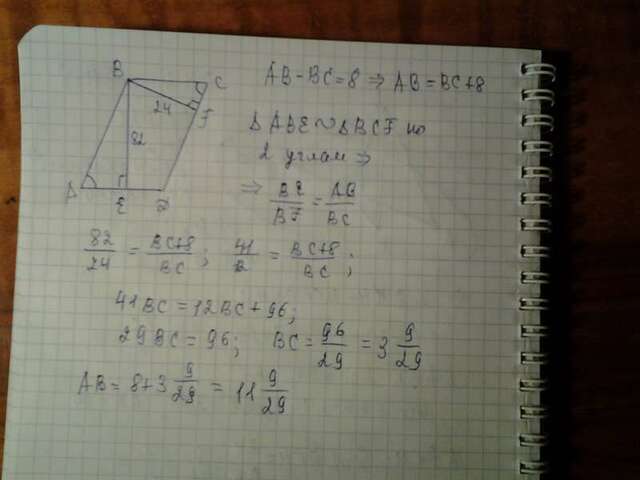 B C
AB - BC = 8 ⇒ AB = BC + 8
24
F
ΔABE ~ ΔBCF по
2 углам ⇒
82
A E D
⇒ BE/BF = AB/BC
82/24 = BC+8/BC ; 41/12 = BC+8/BC ;
41BC = 12BC + 96;
29BC = 96; BC = 96/29 = 3 9/29
AB = 8 + 3 9/29 = 11 9/29